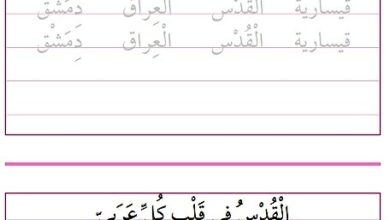 قيسارية الْقُدْس الْعِراق دِمَشْق
قيسارية الْقُدْس الْعِراق دِمَشْق
الْقُدْسُ في قَلْبِ كُلِّ عَرَبيّ